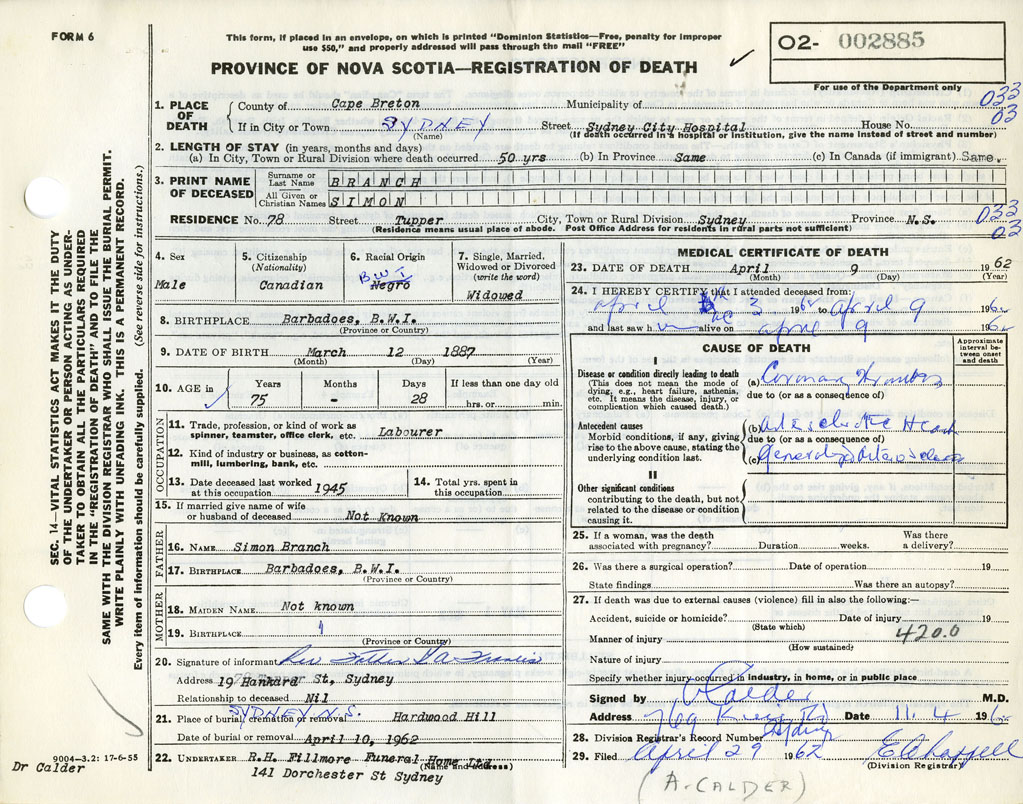 FORM 6
This form, if placed in an envelope, on which is printed "Dominion Statistics—Free, penalty for improper
use $50," and properly addressed will pass through the mail "FREE"
PROVINCE OF NOVA SCOTIA—REGISTRATION OF DEATH
O2- 002885
For use of the Department only
1. PLACE OF DEATH
County of Cape Breton Municipality of 033
If in City or Town SYDNEY Street Sydney City Hospital House No. 03
(Name) (If death occurred in a hospital or institution, give the name instead of street and number)
2. LENGTH OF STAY (in years, months and days)
(a) In City, Town or Rural Division where death occurred 50 yrs (b) In Province Same (c) In Canada (if immigrant) Same.
3. PRINT NAME OF DECEASED
Surname or Last Name BRANCH
All Given or Christian Names SIMON
RESIDENCE No. 78 Street Tupper City, Town or Rural Division Sydney Province N.S. 033
(Residence means usual place of abode. Post Office Address for residents in rural parts not sufficient) 03
4. Sex
Male
5. Citizenship
(Nationality)
Canadian
6. Racial Origin
B.W.I
Negro
7. Single, Married,
Widowed or Divorced
(write the word)
Widowed
8. BIRTHPLACE Barbadoes, B.W.I.
(Province or Country)
9. DATE OF BIRTH March 12 1887
(Month) (Day) (Year)
10. AGE in
Years Months Days If less than one day old
75 - 28 hrs. or min.
OCCUPATION
11. Trade, profession, or kind of work as
spinner, teamster, office clerk, etc. Labourer
12. Kind of industry or business, as cotton-
mill, lumbering, bank, etc.
13. Date deceased last worked
at this occupation 1945
14. Total yrs. spent in
this occupation
15. If married give name of wife
or husband of deceased Not Known
FATHER
16. NAME Simon Branch
17. BIRTHPLACE Barbadoes, B.W.I.
(Province or Country)
MOTHER
18. MAIDEN NAME Not known
19. BIRTHPLACE
(Province or Country)
20. Signature of informant Rev Father
Address 19 Hankard St, Sydney
Relationship to deceased Nil
SYDNEY N.S.
21. Place of burial, cremation or removal Hardwood Hill
Date of burial or removal April 10, 1962
22. UNDERTAKER R.H. Fillmore Funeral Home Ltd
(Name and address)
141 Dorchester St Sydney
9004-3.2: 17-6-55
Dr Calder
MEDICAL CERTIFICATE OF DEATH
23. DATE OF DEATH April 9 1962
(Month) (Day) (Year)
24. I HEREBY CERTIFY that I attended deceased from:
April 3 1962 to April 9 1962
and last saw h alive on April 9 1962
CAUSE OF DEATH
Approximate
interval be-
tween onset
and death
I
Disease or condition directly leading to death
(This does not mean the mode of
dying, e.g., heart failure, asthenia,
etc. It means the disease, injury, or
complication which caused death.)
(a) Coronary
due to (or as a consequence of)
Antecedent causes
Morbid conditions, if any, giving
rise to the above cause, stating the
underlying condition last.
(b) Heart
due to (or as a consequence of)
(c)
II
Other significant conditions
contributing to the death, but not
related to the disease or condition
causing it.
25. If a woman, was the death Was there
associated with pregnancy? Duration weeks. a delivery?
26. Was there a surgical operation? Date of operation 19
State findings Was there an autopsy?
27. If death was due to external causes (violence) fill in also the following:—
Accident, suicide or homicide? Date of injury 19
(State which)
Manner of injury 420.0
(How sustained)
Nature of injury
Specify whether injury occurred in industry, in home, or in public place
Signed by A Calder M.D.
Address 769 Date 11.4 1962
28. Division Registrar's Record Number
29. Filed April 29 1962
(Division Registrar)
(A. CALDER)
SEC. 14—VITAL STATISTICS ACT MAKES IT THE DUTY
OF THE UNDERTAKER OR PERSON ACTING AS UNDER-
TAKER TO OBTAIN ALL THE PARTICULARS REQUIRED
IN THE "REGISTRATION OF DEATH" AND TO FILE THE
SAME WITH THE DIVISION REGISTRAR WHO SHALL ISSUE THE BURIAL PERMIT.
WRITE PLAINLY WITH UNFADING INK. THIS IS A PERMANENT RECORD.
Every item of information should be carefully supplied. (See reverse side for instructions.)